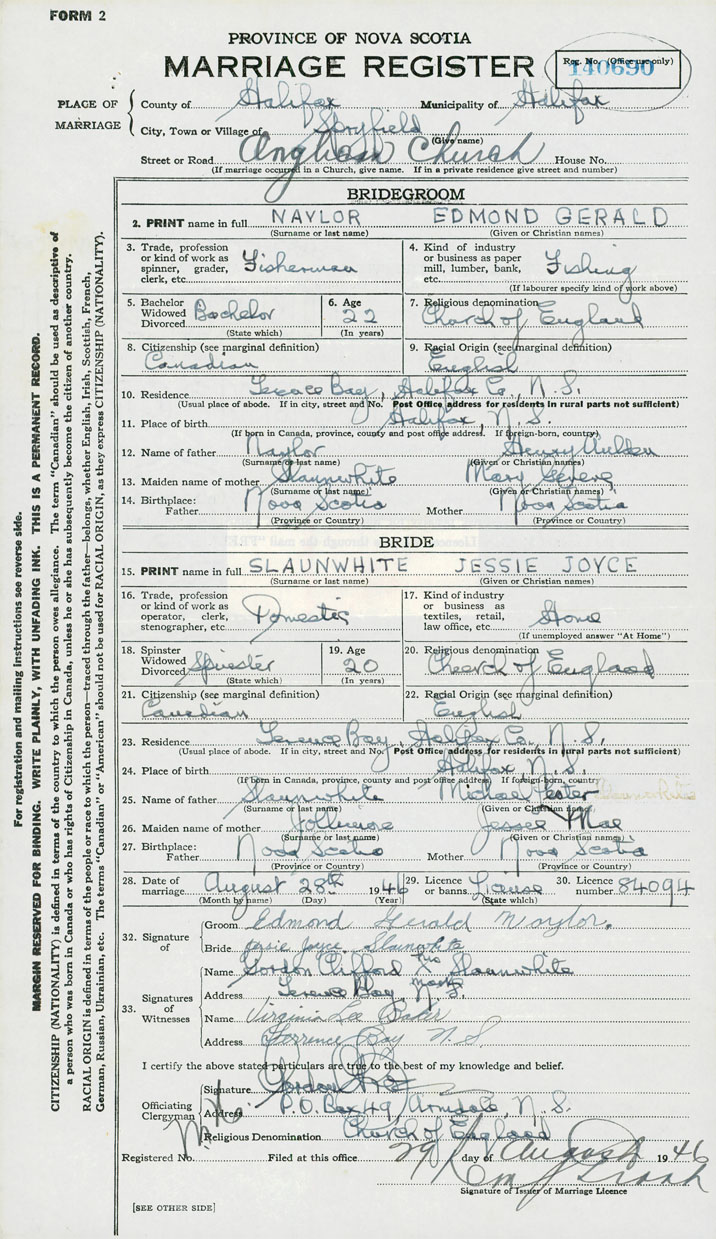 FORM 2
PROVINCE OF NOVA SCOTIA
MARRIAGE REGISTER
Reg. No. (Office use only)
140690
PLACE OF MARRIAGE
County of Halifax Municipality of Halifax
City, Town or Village of Spryfield
(Give name)
Street or Road Anglican Church House No.
(If marriage occurred in a Church, give name. If in a private residence give street and number)
BRIDEGROOM
2. PRINT name in full NAYLOR EDMOND GERALD
(Surname or last name) (Given or Christian names)
3. Trade, profession or kind of work as spinner, grader, clerk, etc. Fisherman
4. Kind of industry or business as paper mill, lumber, bank, etc. Fishing
(If labourer specify kind of work above)
5. Bachelor Widowed Divorced Bachelor
(State which)
6. Age 22
(In years)
7. Religious denomination Church of England
8. Citizenship (see marginal definition) Canadian
9. Racial Origin (see marginal definition) English
10. Residence Terence Bay, Halifax Co., N.S.
(Usual place of abode. If in city, street and No. Post Office address for residents in rural parts not sufficient)
11. Place of birth Halifax, N.S.
(If born in Canada, province, county and post office address. If foreign-born, country)
12. Name of father Naylor Henry
(Surname or last name) (Given or Christian names)
13. Maiden name of mother Slaunwhite Mary
(Surname or last name) (Given or Christian names)
14. Birthplace: Father Nova Scotia Mother Nova Scotia
(Province or Country) (Province or Country)
BRIDE
15. PRINT name in full SLAUNWHITE JESSIE JOYCE
(Surname or last name) (Given or Christian names)
16. Trade, profession or kind of work as operator, clerk, stenographer, etc. Domestic
17. Kind of industry or business as textiles, retail, law office, etc. Home
(If unemployed answer "At Home")
18. Spinster Widowed Divorced Spinster
(State which)
19. Age 20
(In years)
20. Religious denomination Church of England
21. Citizenship (see marginal definition) Canadian
22. Racial Origin (see marginal definition) English
23. Residence Terence Bay, Halifax Co., N.S.
(Usual place of abode. If in city, street and No. Post Office address for residents in rural parts not sufficient)
24. Place of birth Halifax N.S.
(If born in Canada, province, county and post office address. If foreign-born, country)
25. Name of father Slaunwhite Michael
(Surname or last name) (Given or Christian names)
26. Maiden name of mother Jollimore Jessie Mae
(Surname or last name) (Given or Christian names)
27. Birthplace: Father Nova Scotia Mother Nova Scotia
(Province or Country) (Province or Country)
28. Date of marriage August 28th 1946
(Month by name) (Day) (Year)
29. Licence or banns License
(State which)
30. Licence number 84094
32. Signature of
Groom Edmond Gerald Naylor.
Bride Jessie Joyce Slaunwhite
33. Signatures of Witnesses
Name Gordon Clifford his X Slaunwhite
Address Terence Bay mark N.S.
Name Virginia Lee Baker
Address Terrence Bay N.S.
I certify the above stated particulars are true to the best of my knowledge and belief.
Officiating Clergyman
Signature Gordon
Address P.O. Box 49, Armdale, N.S.
Religious Denomination Church of England
Registered No. Filed at this office 29 day of August 1946
Signature of Issuer of Marriage Licence
[SEE OTHER SIDE]
For registration and mailing instructions see reverse side.
MARGIN RESERVED FOR BINDING. WRITE PLAINLY, WITH UNFADING INK. THIS IS A PERMANENT RECORD.
CITIZENSHIP (NATIONALITY) is defined in terms of the country to which the person owes allegiance. The term "Canadian" should be used as descriptive of
a person who was born in Canada or who has rights of Citizenship in Canada, unless he or she has subsequently become the citizen of another country.
RACIAL ORIGIN is defined in terms of the people or race to which the person—traced through the father—belongs, whether English, Irish, Scottish, French,
German, Russian, Ukrainian, etc. The terms "Canadian" or "American" should not be used for RACIAL ORIGIN, as they express CITIZENSHIP (NATIONALITY).